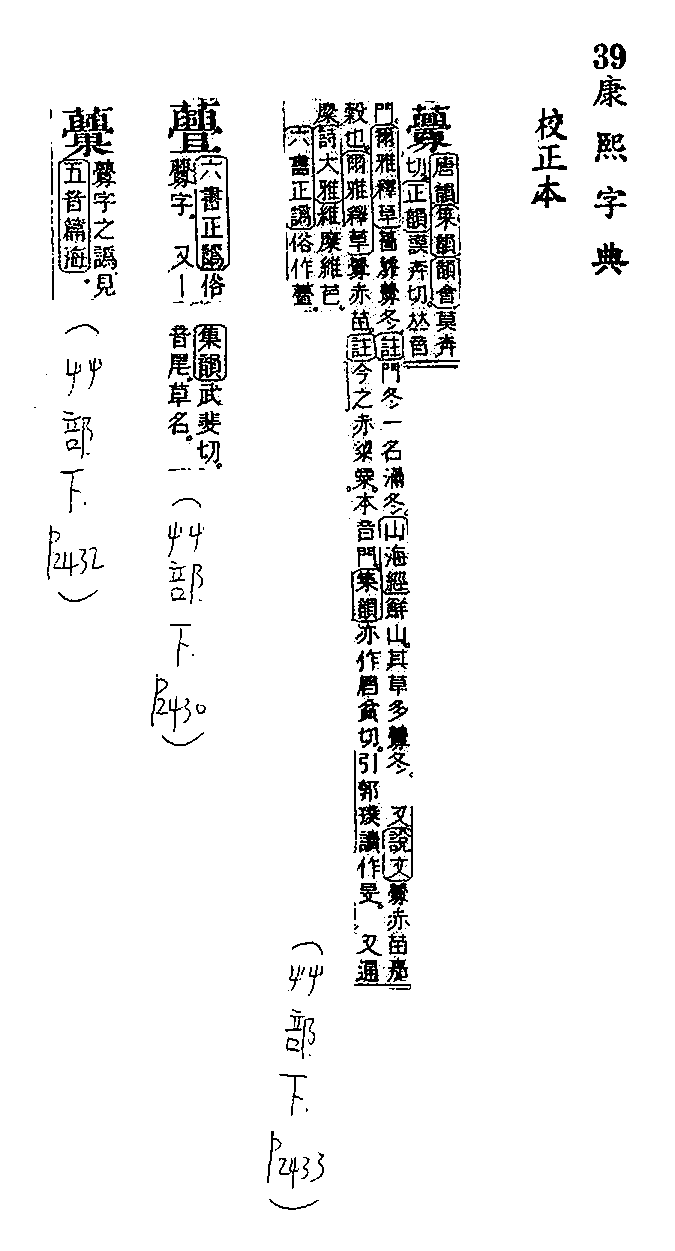 39康熙字典
校正本
虋
唐韻集韻韻會莫奔
切。正韻謨奔切。𠀤音
門。爾雅釋草蘠蘼虋冬。註門冬一名滿冬。山海經鮮山。其草多虋冬。 又說文虋赤苗嘉
穀也。爾雅釋草虋赤苗。註今之赤粱粟。本音門。集韻亦作眉貧切。引郭璞讀作旻。 又通
穈詩大雅維穈維芑。
六書正譌俗作
(艸部下. P2433)
六書正譌俗
虋字。 又
集韻武斐切。
音尾。草名。
(艸部下. P2430)
虋字之譌見
五音篇海。
(艸部下. P2432)